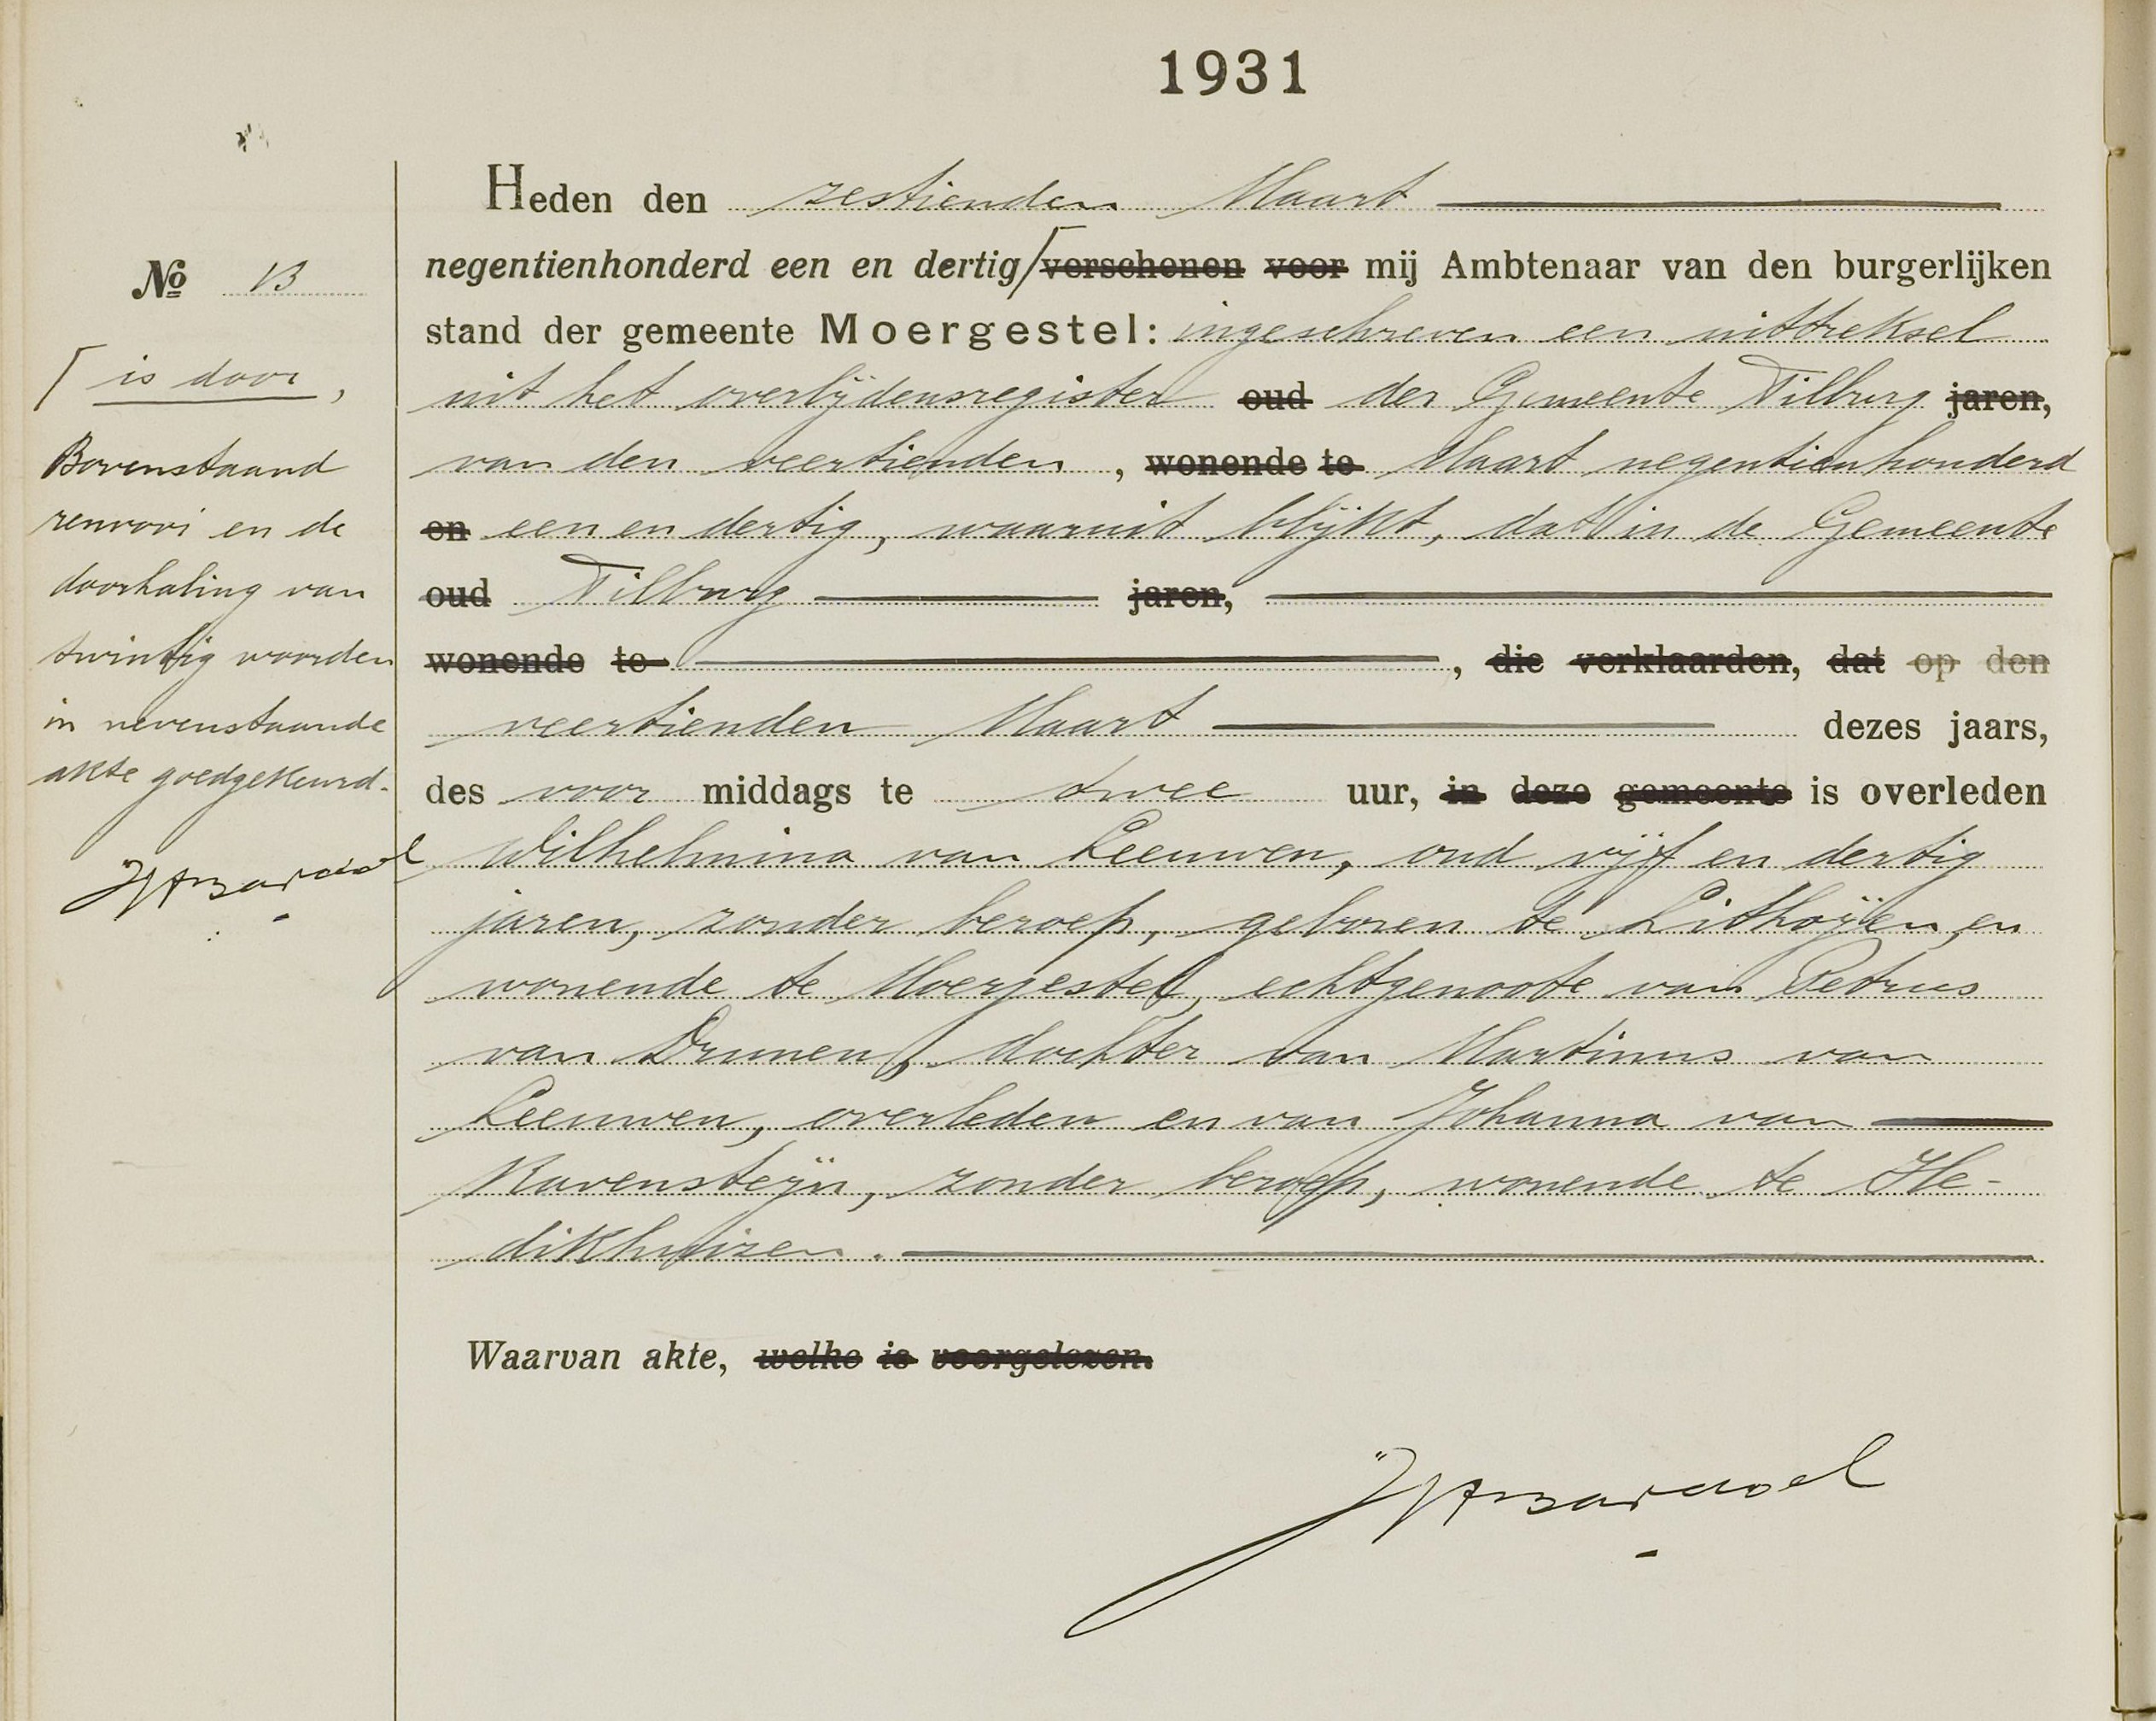 1931
Heden den zestienden Maart
negentienhonderd een en dertig ⌈ verschenen voor mij Ambtenaar van den burgerlijken
stand der gemeente Moergestel: ingeschreven een uittreksel
uit het overlijdensregister oud der Gemeente Tilburg jaren,
van den veertienden, wonende te Maart negentienhonderd
en een en dertig, waaruit blijkt, dat in de Gemeente
oud Tilburg jaren,
wonende te , die verklaarden, dat op den
veertienden Maart dezes jaars,
des voor middags te twee uur, in deze gemeente is overleden
Wilhelmina van Leeuwen, oud vijf en dertig
jaren, zonder beroep, geboren te Lithoijen, en
wonende te Moergestel, echtgenoote van Petrus
van Drunen, dochter van Martinus van
Leeuwen, overleden en van Johanna van
Ravensteijn, zonder beroep, wonende te He-
dikhuizen.
Waarvan akte, welke is voorgelezen.
No 13
⌈ is door,
Bovenstaand
renvooi en de
doorhaling van
twintig woorden
in nevenstaande
akte goedgekeurd.